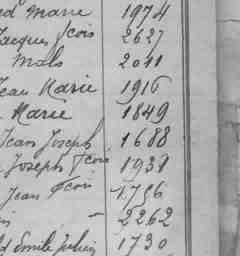 Marie 1974
Jacques fcois 2627
Mols 2011
Jean Marie 1916
Marie 1849
Jean Joseph 1688
Joseph fcois 1931
Jean fcois 1756
2262
Emile Julien 1730